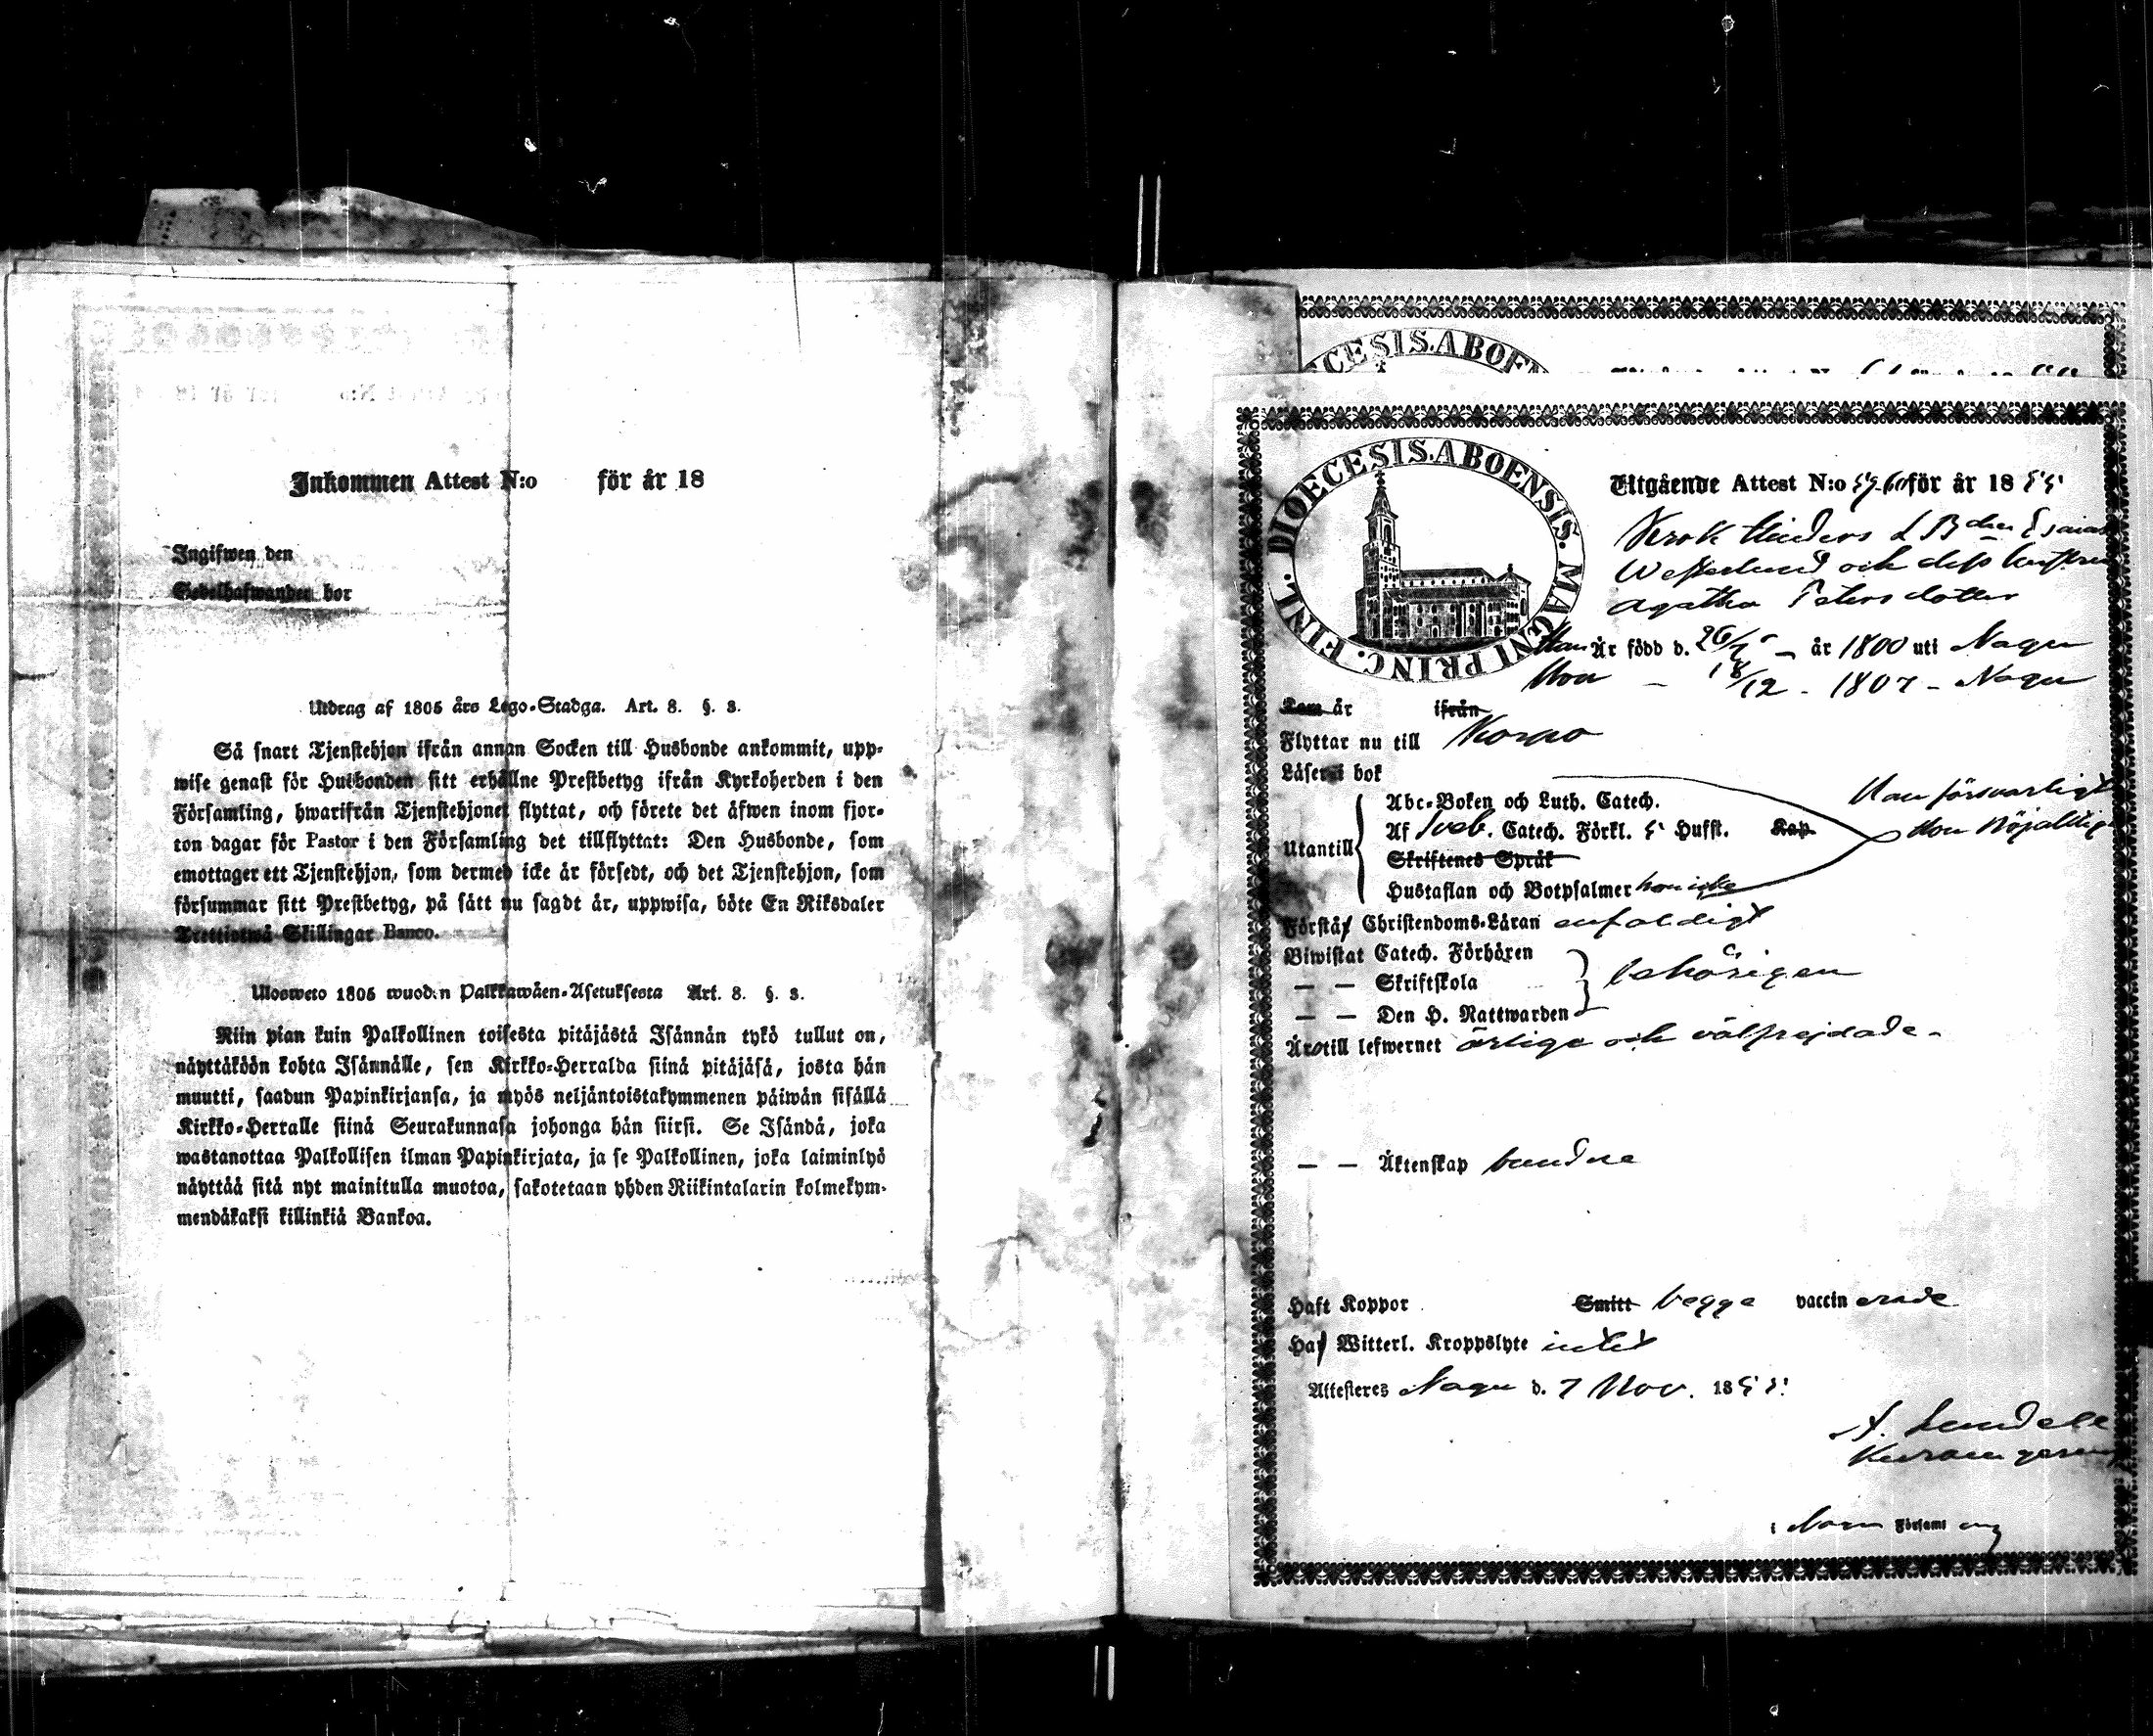 Inkommen Attest N:o för år 18
Ingifwen den
Sedelhafwanden bor
Utdrag af 1805 års Lego-Stadga. Art. 8. §. 3.
Så snart Tjenstehjon ifrån annan Socken till Husbonde ankommit, upp-
wise genast för Husbonden sitt erhållne Prestbetyg ifrån Kyrkoherden i den
Församling, hwarifrån Tjenstehjonet flyttat, och förete det äfwen inom fjor-
ton dagar för Pastor i den Församling det tillflyttat: Den Husbonde, som
emottager ett Tjenstehjon, som dermed icke är försedt, och det Tjenstehjon, som
försummar sitt Prestbetyg, på sätt nu sagdt är, uppwisa, böte En Riksdaler
Trettiotwå Skillingar Banco.
Ulosweto 1805 wuoden Palkkawäen-Asetuksesta Art. 8. §. 3.
Niin pian kuin Palkollinen toisesta pitäjästä Isännän tykö tullut on,
näyttäköön kohta Isännälle, sen Kirkko-Herralda siinä pitäjäsä, josta hän
muutti, saadun Papinkirjansa, ja myös neljäntoistakymmenen päiwän sisällä
Kirkko-Herralle siinä Seurakunnasa johonga hän siirsi. Se Isändä, joka
wastanottaa Palkollisen ilman Papinkirjata, ja se Palkollinen, joka laiminlyö
näyttää sitä nyt mainitulla muotoa, sakotetaan yhden Riikintalarin kolmekym-
mendäkaksi killinkiä Bankoa.
DIOECESIS. ABOENSIS. MAGNI PRINC. FINL.
Utgående Attest N:o 59-60 för år 1855
Krok Anders Esaias
Westerlund och dess hustru
Agatha Petersdotter
Han Är född d. 26/5 – år 1800 uti Nagu
Hon – 18/12 - 1807 - Nagu
Kom år ifrån
Flyttar nu till Korpo
Läser i bok
Utantill
Abc-Boken och Luth. Catech.
Af Sveb. Catech. Förkl. 5 Hufst. Kap
Skriftenes Språk
Hustaflan och Botpsalmer hon icke
Han försvarligt
Hon nöjaktligt
Förstå Christendoms-Läran enfaldigt
Biwistat Catech. Förhören
— — Skriftskola
— — Den H. Nattwarden
behörigen
Äro till lefwernet ärliga och välfrejdade -
— — Äktenskap bundne
Haft Koppor Smitt begge vaccinerade
Haf Witterl. Kroppslyte intet
Attesteras Nagu d. 7 Nov. 1855
A. Lundell
i Nagu Församling